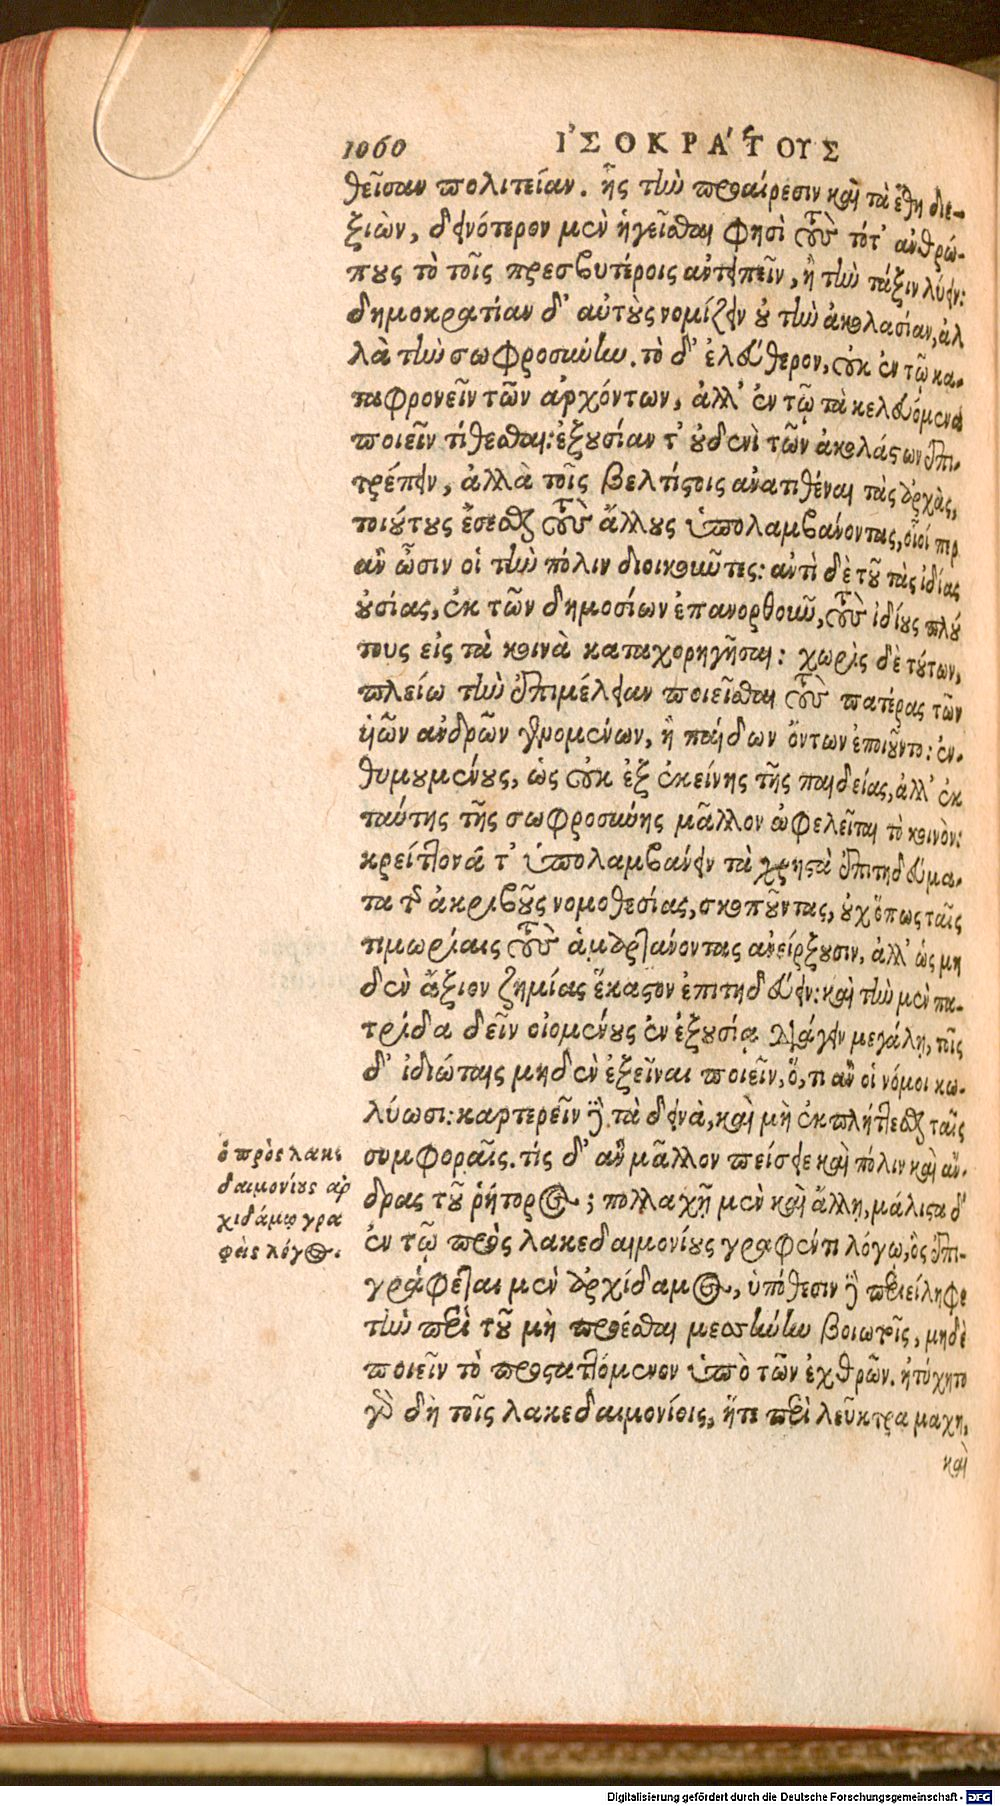 1060 ἸΣΟΚΡΆΤΟΥΣ
θεῖσαν πολιτείαν. ἧς τὴν προαίρεσιν καὶ τὰ ἔθη διε-
ξιὼν, δεινότερον μὲν ἡγεῖσθαι φησὶ τοὺς τότ' ἀνθρώ-
πους τὸ τοῖς πρεσβυτέροις ἀντειπεῖν, ἢ τὴν τάξιν λύειν:
δημοκρατίαν δ' αὐτοὺς νομίζειν οὐ τὴν ἀκολασίαν, ἀλ
λὰ τὴν σωφροσύνην. τὸ δ' ἐλεύθερον, οὐκ ἐν τῷ κα-
ταφρονεῖν τῶν ἀρχόντων, ἀλλ' ἐν τῷ τὰ κελευόμενα
ποιεῖν τίθεσθαι: ἐξουσίαν τ' οὐδενὶ τῶν ἀκολάστων ἐπι-
τρέπειν, ἀλλὰ τοῖς βελτίστοις ἀνατιθέναι τὰς ἀρχὰς,
τοιούτους ἔσεσθαι τοὺς ἄλλους ὑπολαμβάνοντας, οἷοί περ
ἂν ὦσιν οἱ τὴν πόλιν διοικοῦντες: ἀντὶ δὲ τοῦ τὰς ἰδίας
οὐσίας, ἐκ τῶν δημοσίων ἐπανορθοῦν, τοὺς ἰδίους πλού
τους εἰς τὰ κοινὰ καταχορηγῆσαι: χωρὶς δὲ τούτων,
πλείω τὴν ἐπιμέλειαν ποιεῖσθαι τοὺς πατέρας τῶν
ὑῶν ἀνδρῶν γενομένων, ἢ παίδων ὄντων ἐποιοῦντο: ἐν-
θυμουμένους, ὡς οὐκ ἐξ ἐκείνης τῆς παιδείας, ἀλλ' ἐκ
ταύτης τῆς σωφροσύνης μᾶλλον ὠφελεῖται τὸ κοινὸν:
κρείττονά τ' ὑπολαμβάνειν τὰ χρηστὰ ἐπιτηδεύμα-
τα τῆς ἀκριβοῦς νομοθεσίας, σκοποῦντας, οὐχ ὅπως ταῖς
τιμωρίαις τοὺς ἁμαρτάνοντας ἀνείρξουσιν, ἀλλ' ὡς μη
δὲν ἄξιον ζημίας ἕκαστον ἐπιτηδεύειν: καὶ τὴν μὲν πα-
τρίδα δεῖν οἰομένους ἐν ἐξουσίᾳ διάγειν μεγάλῃ, τοῖς
δ' ἰδιώταις μηδὲν ἐξεῖναι ποιεῖν, ὅ, τι ἂν οἱ νόμοι κω-
λύωσι: καρτερεῖν δὲ τὰ δεινὰ, καὶ μὴ ἐκπλήττεσθαι ταῖς
συμφοραῖς. τίς δ' ἂν μᾶλλον πείσειε καὶ πόλιν καὶ ἄν-
δρας τοῦ ῥήτορος; πολλαχῇ μὲν καὶ ἄλλῃ, μάλιστα δ'
ἐν τῷ πρὸς λακεδαιμονίους γραφέντι λόγῳ, ὃς ἐπι-
γράφεται μὲν ἀρχίδαμος, ὑπόθεσιν δὲ περιείληφε
τὴν περὶ τοῦ μὴ προέσθαι μεσσήνην βοιωτοῖς, μηδὲ
ποιεῖν τὸ προσταττόμενον ὑπὸ τῶν ἐχθρῶν. ἠτύχητο
γὰρ δὴ τοῖς λακεδαιμονίοις, ἥτε περὶ λεῦκτρα μάχη,
καὶ
ὁ πρὸς λακε
δαιμονίους ἀρ
χιδάμῳ γρα
φεὶς λόγος.
Digitalisierung gefördert durch die Deutsche Forschungsgemeinschaft - DFG